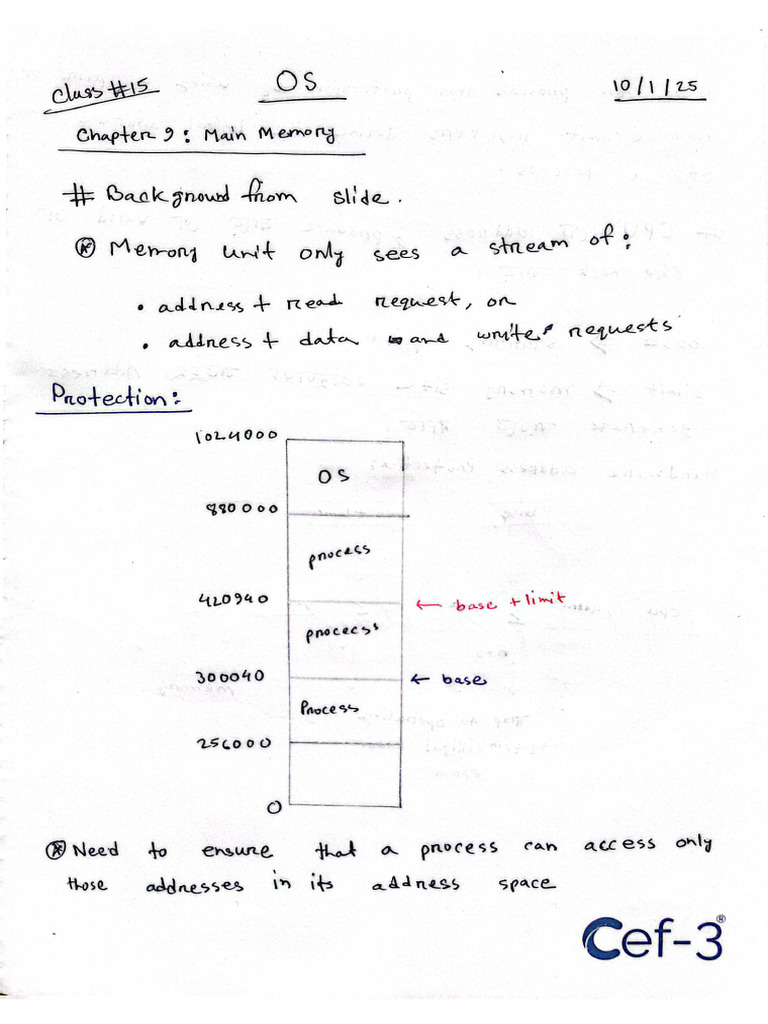 Class #15 OS 10/1/25
Chapter 9: Main Memory
# Background from slide.
⊛ Memory unit only sees a stream of:
• address + read request, or
• address + data and write requests
Protection:
1024000
OS
880000
process
420940 ← base + limit
process
300040 ← base
Process
256000
0
⊛ Need to ensure that a process can access only
those addresses in its address space
Cef-3®